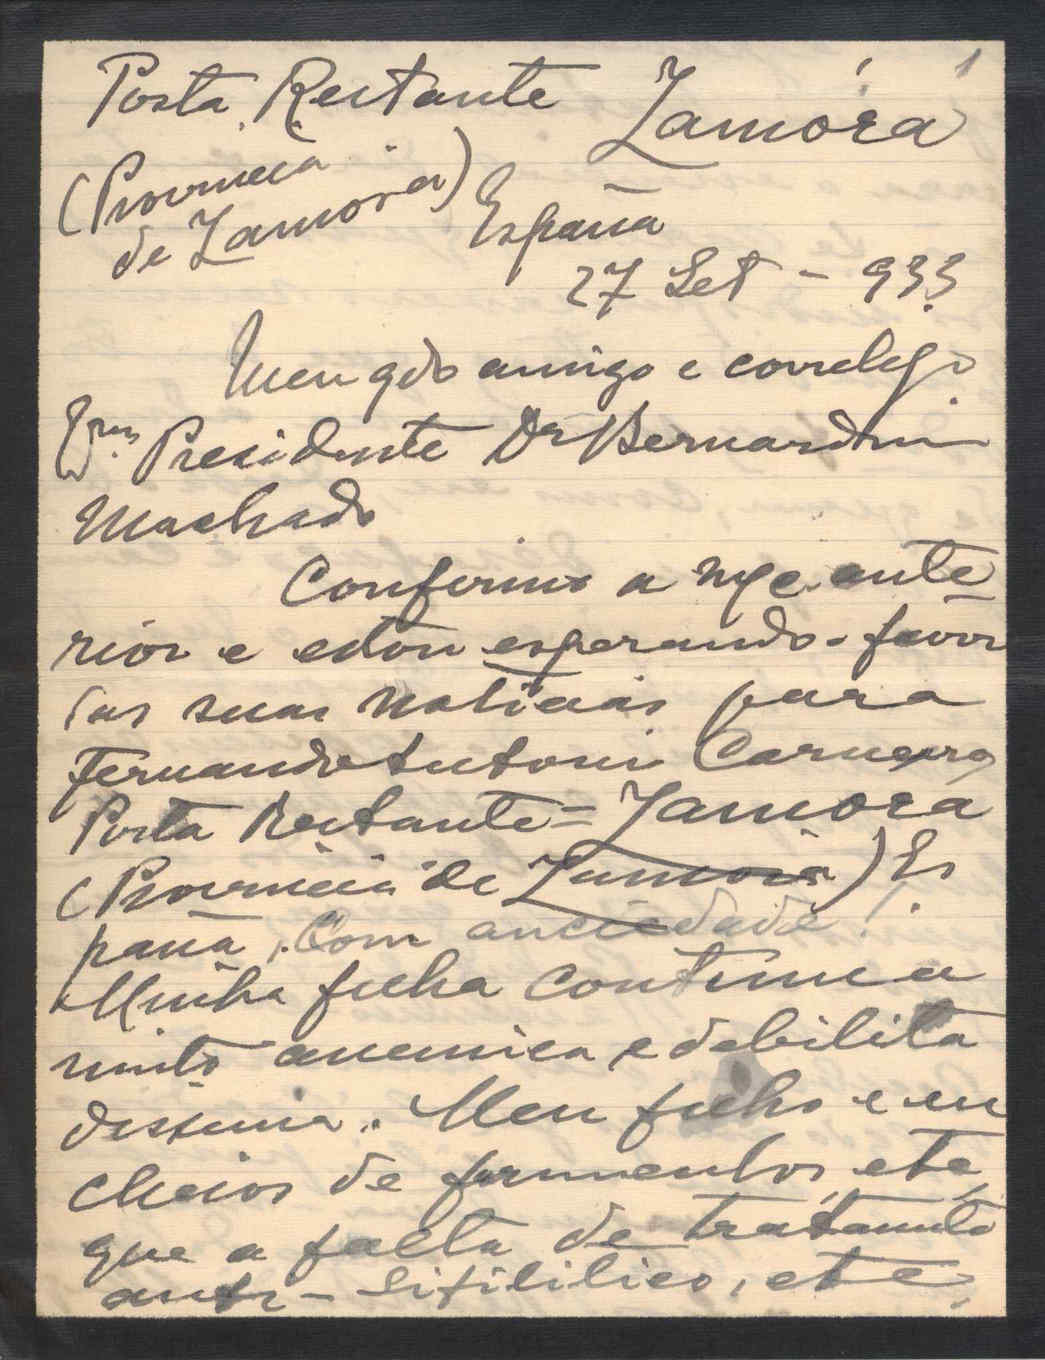 1
Posta Restante Zamóra
(Provincia
de Zamora) España
27 Set - 933
Meu qdo amigo e correlig.o
Exmo Presidente Dr Bernardino
Machado
Confirmo a mª c. ante
rior e estou esperando o favor
das suas noticias para
Fernando Antonio Carneiro
Posta Restante = Zamora
(Provincia de Zamora) Es
paña, Com anciedade!
Minha filha continua
muito anemica e debilita
dissima. Meu filho e eu
cheios de furunculos, etc,
que a falta de tratamento
anti-sifilitico, etc,